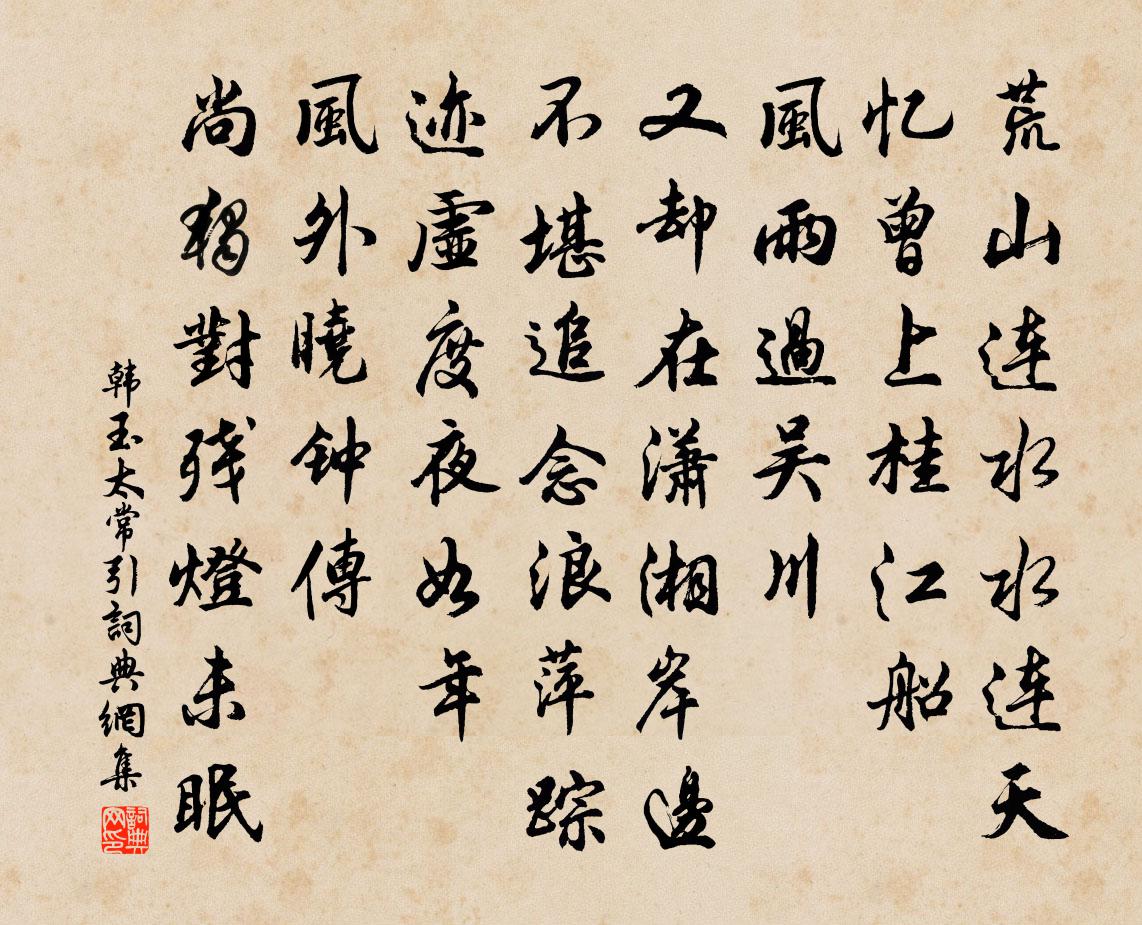 荒山连水水连天
忆曾上桂江船
風雨過吴川
又却在潇湘岸邊
不堪追念浪萍踪
迹虚度夜如年
風外曉钟傳
尚独對残燈未眠
韩玉太常引詞典網集
詞典网印